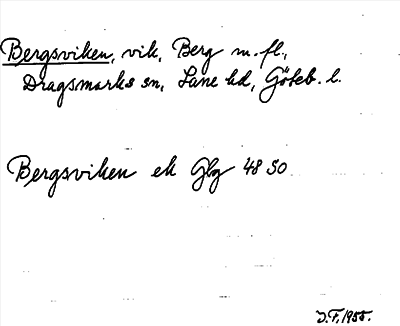 Bergsviken, vik, Berg m.fl.,
Dragsmarks sn, Lane hd, Göteb. l.
Bergsviken ek Glg 48 SO
J.F. 1955.